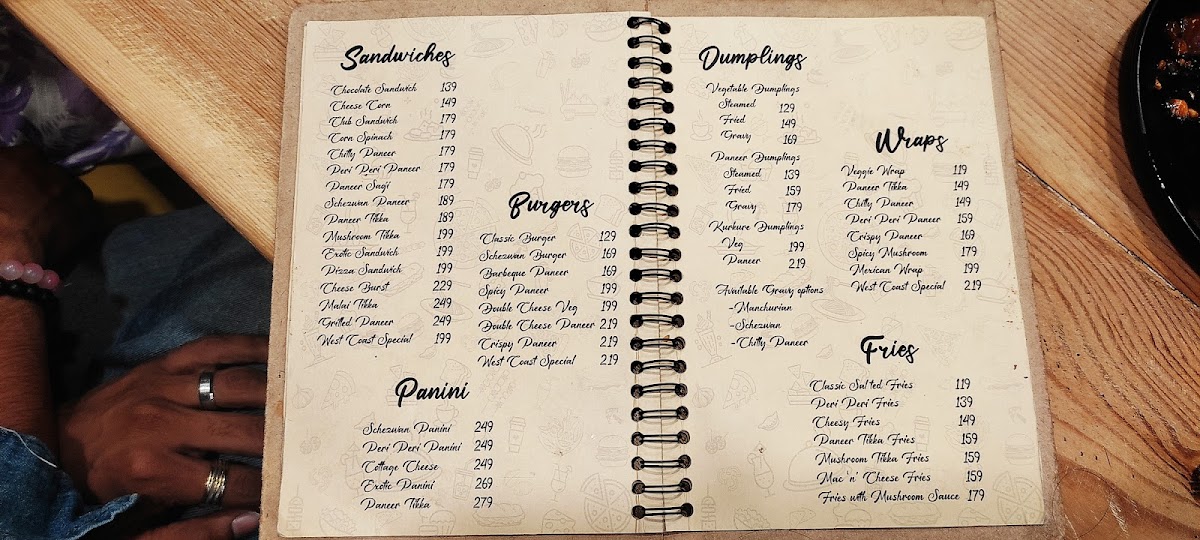 Sandwiches
Chocolate Sandwich 139
Cheese Corn 149
Club Sandwich 179
Corn Spinach 179
Chilly Paneer 179
Peri Peri Paneer 179
Paneer Sagi 179
Schezwan Paneer 189
Paneer Tikka 189
Mushroom Tikka 199
Exotic Sandwich 199
Pizza Sandwich 199
Cheese Burst 229
Malai Tikka 249
Grilled Paneer 249
West Coast Special 199
Burgers
Classic Burger 129
Schezwan Burger 169
Barbeque Paneer 169
Spicy Paneer 199
Double Cheese Veg 199
Double Cheese Paneer 219
Crispy Paneer 219
West Coast Special 219
Panini
Schezwan Panini 249
Peri Peri Panini 249
Cottage Cheese 249
Exotic Panini 269
Paneer Tikka 279
Dumplings
Vegetable Dumplings
Steamed 129
Fried 149
Gravy 169
Paneer Dumplings
Steamed 139
Fried 159
Gravy 179
Kurkure Dumplings
Veg 199
Paneer 219
Available Gravy options
-Manchurian
-Schezwan
-Chilly Paneer
Wraps
Veggie Wrap 119
Paneer Tikka 149
Chilly Paneer 149
Peri Peri Paneer 159
Crispy Paneer 169
Spicy Mushroom 179
Mexican Wrap 199
West Coast Special 219
Fries
Classic Salted Fries 119
Peri Peri Fries 139
Cheesy Fries 149
Paneer Tikka Fries 159
Mushroom Tikka Fries 159
Mac 'n' Cheese Fries 159
Fries with Mushroom Sauce 179